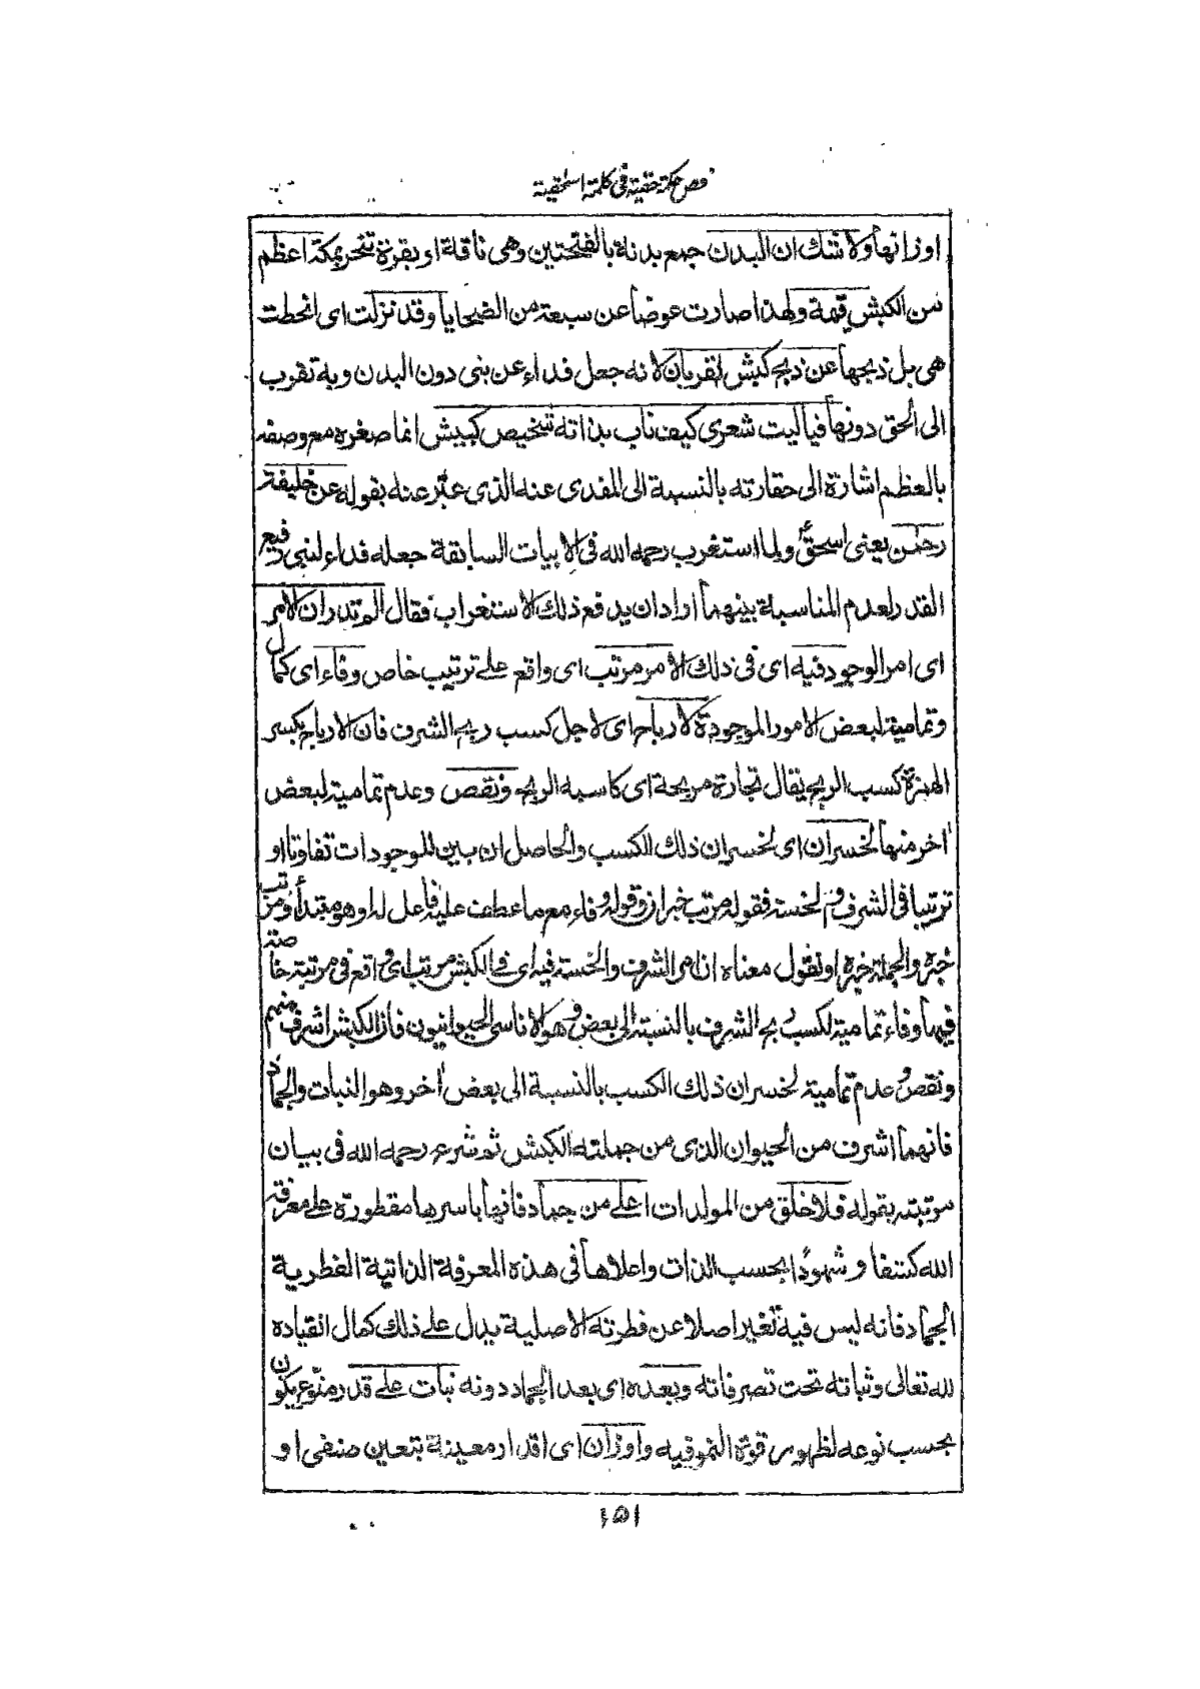 فص حكمة حقية في كلمة اسحقية
اوزانها ولا شك ان البدن جمع بدنة بالفتحتين وهى ناقلة او بقرة تنحر بمكة اعظم
من الكبش قيمة ولهذا صارت عوضا عن سبعة من الضحايا وقد نزلت اى انحطت
هى بل ذبحها عن ذبح كبش لقربان لانه جعل فداء عن بنى دون البدن وبه تقرب
الى الحق دونها فياليت شعرى كيف ناب بذاته شخيص كبيش انما صغره مع وصفه
بالعظم اشارة الى حقارته بالنسبة الى المفدى عنه الذى عبّر عنه بقوله عن خليفة
رحمن يعنى اسحق ولما استغرب رحمه الله فى الابيات السابقة جعله فداء لنبى رفيع
القدر لعدم المناسبة بينهما اراد ان يدفع ذلك الاستغراب فقال الم تدر ان الامر
اى امر الوجود فيه اى فى ذلك الامر مرتب اى واقع على ترتيب خاص وفاء اى كمال
وتمامية لبعض الامور الموجودة لارباح اى لاجل كسب ربح الشرف فان الارباح بكسر
الهمزة كسب الربح يقال تجارة مربحة اى كاسبه الربح ونقص وعدم تمامية لبعض
اخر منها لخسران اى لخسران ذلك الكسب والحاصل ان بين الموجودات تفاوتا او
ترتيبا فى الشرف والخسة فقوله مرتب خبر ان وقوله وفاء مع ما عطف عليه فاعل له او هو مبتدأ ومرتب
خبره والجملة خبره او نقول معناه ان امر الشرف والخسة فيه اى فى الكبش مرتب اى واقع فى مرتبة خاصة
فيها وفاء تمامية لكسب ربح الشرف بالنسبة الى بعض وهو الاناسى الحيوانيون فان الكبش اشرف منهم
ونقص وعدم تمامية لخسران ذلك الكسب بالنسبة الى بعض اخر وهو النبات والجماد
فانهما اشرف من الحيوان الذى من جملته الكبش ثم شرع رحمه الله فى بيان
مرتبته بقوله فلا خلق من المولدات اعلى من جماد فانها باسرها مفطورة على معرفة
الله كشفا وشهودا بحسب الذات واعلاها فى هذه المعرفة الذاتية الفطرية
الجماد فانه ليس فيه تغير اصلا عن فطرته الاصلية يدل على ذلك كمال انقياده
لله تعالى وثباته تحت تصرفاته وبعده اى بعد الجماد دونه نبات على قدر متنوع يكون
بحسب نوعه لظهور قوة النمو فيه واوزان اى اقدار معينة بتعين صنفى او
١٥١